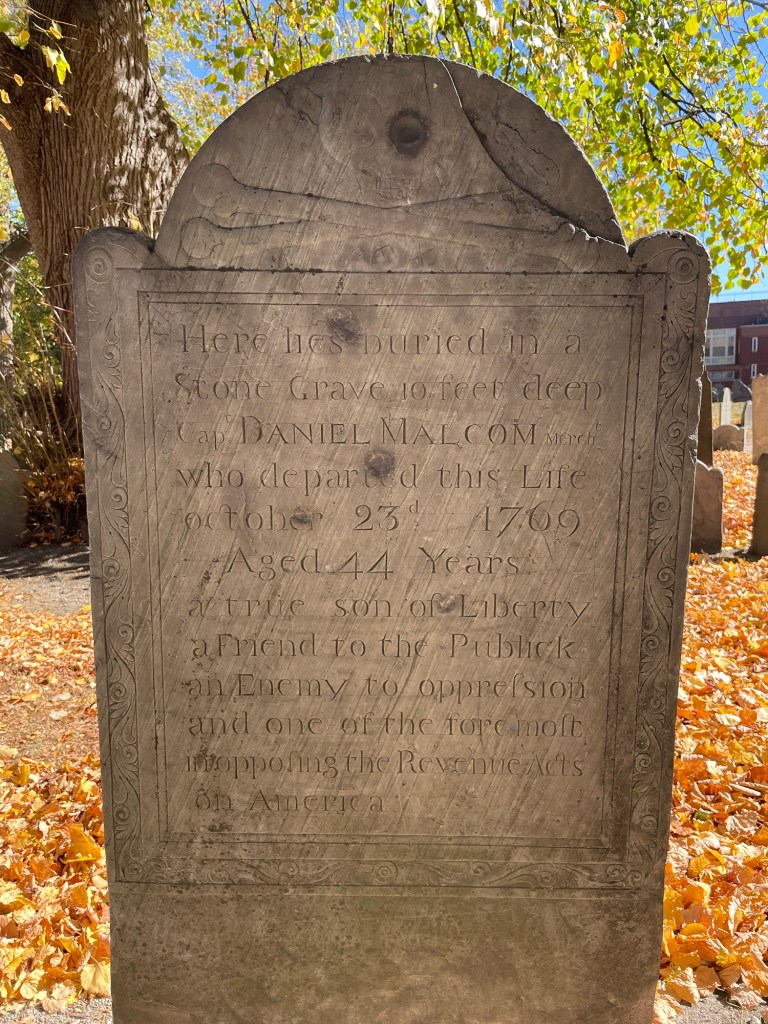 Here lies buried in a
Stone Grave 10 feet deep
Capᵗ DANIEL MALCOM Merchᵗ
who departed this Life
october 23ᵈ 1769
Aged 44 Years
a true son of Liberty
a Friend to the Publick
an Enemy to oppreſsion
and one of the foremoſt
in oppoſing the Revenue Acts
on America